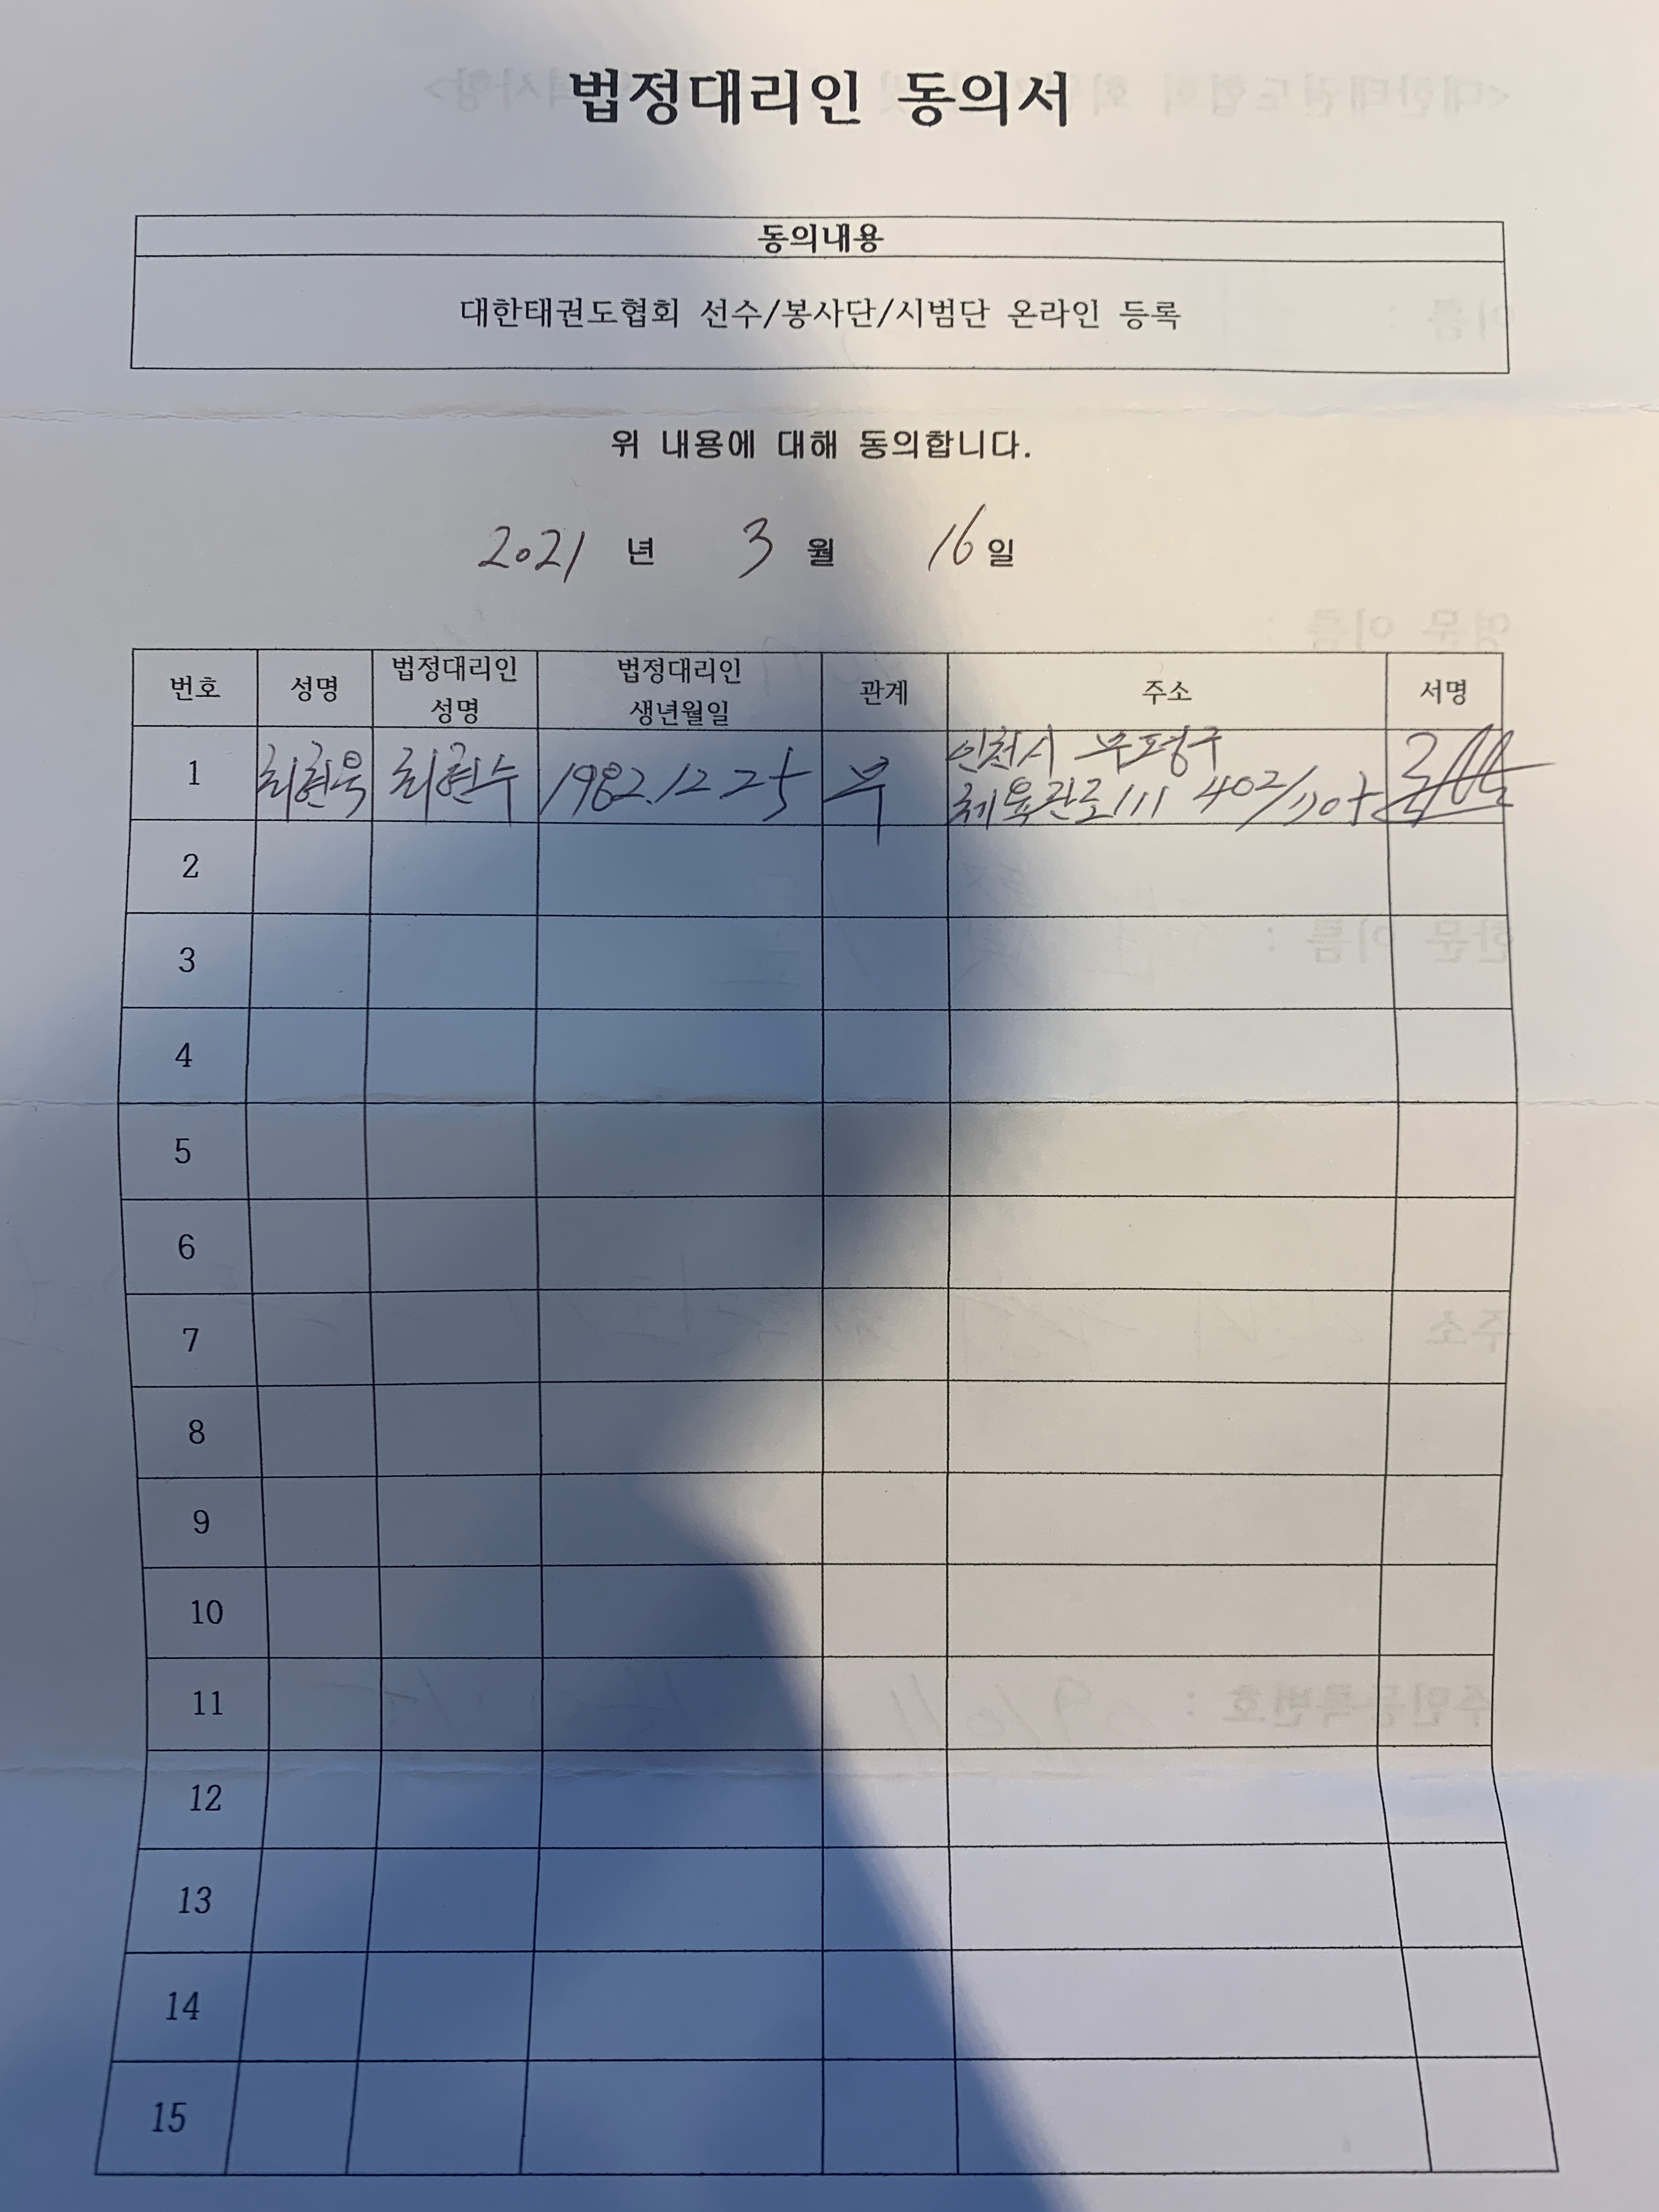 법정대리인 동의서
동의내용
대한태권도협회 선수/봉사단/시범단 온라인 등록
위 내용에 대해 동의합니다.
2021 년 3 월 16 일
번호 성명 법정대리인 성명 법정대리인 생년월일 관계 주소 서명
1 최현욱 최현수 1982.12.25 부 인천시 부평구
체육관로 111 402/1105
2
3
4
5
6
7
8
9
10
11
12
13
14
15